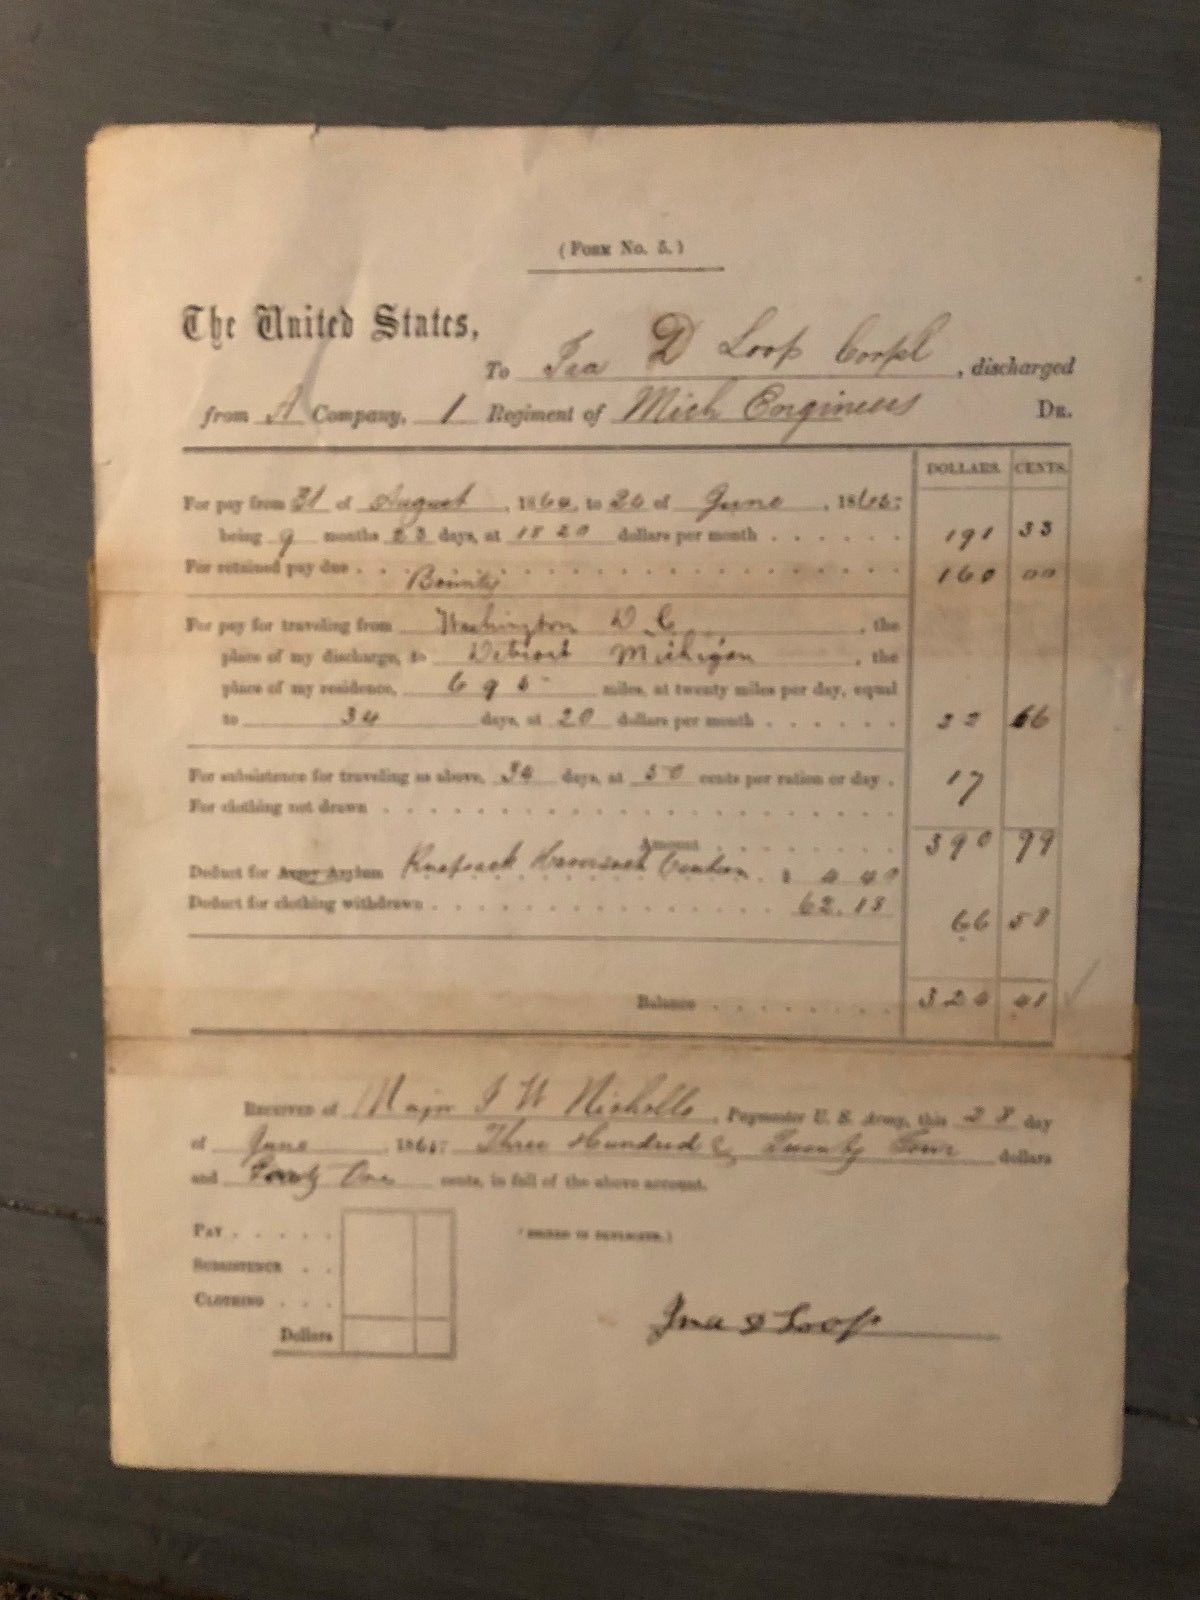 (FORM No. 5.)
The United States,
To Ira D Loop Corpl, discharged
from A Company, 1 Regiment of Mich Engineers DR.
DOLLARS. CENTS.
For pay from 31 of August, 1864, to 24 of June, 1865;
being 9 months 23 days, at 18 20 dollars per month . . . . . . 191 33
For retained pay due . . . Bounty . . . 160 00
For pay for traveling from Washington D. C., the
place of my discharge, to Detroit Michigan, the
place of my residence, 695 miles, at twenty miles per day, equal
to 34 days, at 20 dollars per month . . . . . . 22 66
For subsistence for traveling as above, 34 days, at 50 cents per ration or day . 17
For clothing not drawn . . . . . .
Amount . . . . . . 390 99
Deduct for Army Asylum Knapsack Haversack Canteen . $ 4 40
Deduct for clothing withdrawn . . . . . . 62.18
66 58
Balance . . . . . . 324 41
RECEIVED of Major I W Nicholls, Paymaster U. S. Army, this 28 day
of June, 1865; Three Hundred & Twenty Four dollars
and Forty One cents, in full of the above account.
PAY . . . . .
(SIGNED IN DUPLICATE.)
SUBSISTENCE . .
CLOTHING . . .
Dollars
Ira D Loop